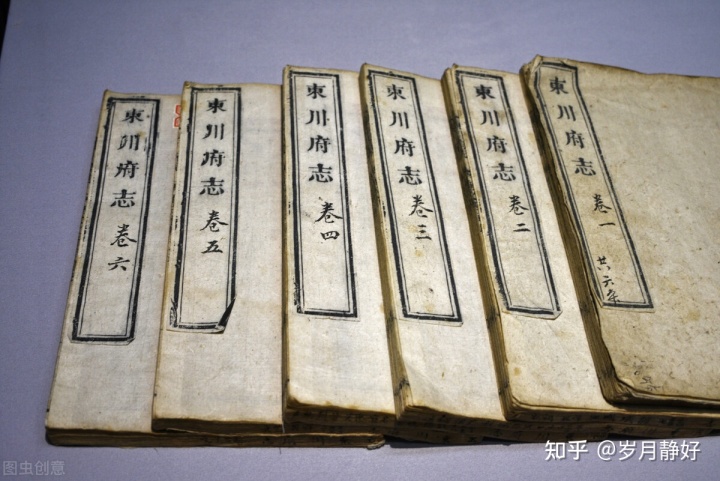 東川府志 卷一 共六本
東川府志 卷二
東川府志 卷三
東川府志 卷四
東川府志 卷五
東川府志 卷六
知乎 @岁月静好
图虫创意